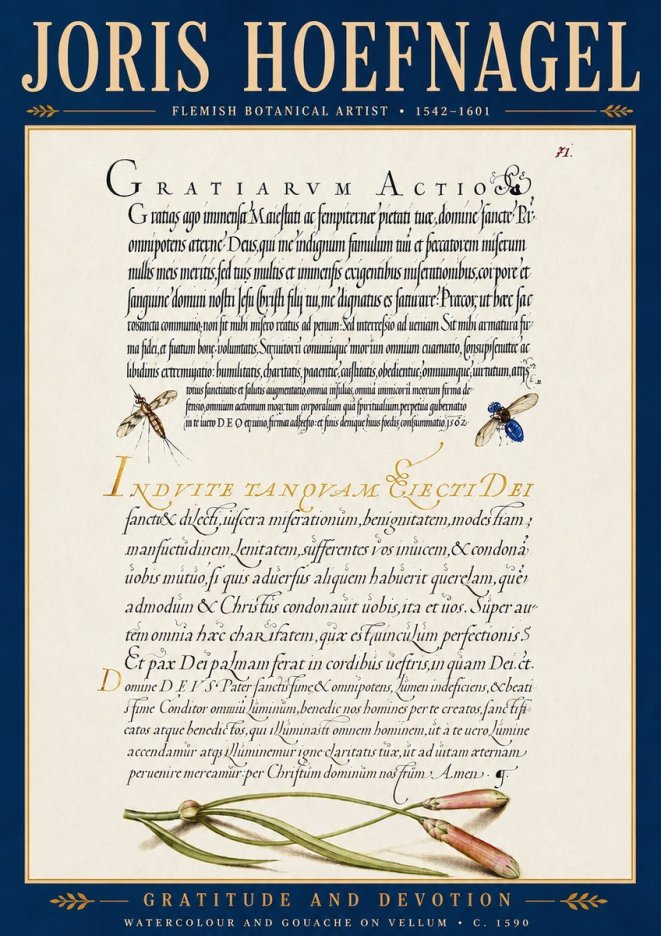 JORIS HOEFNAGEL
FLEMISH BOTANICAL ARTIST • 1542–1601
71.
GRATIARVM ACTIO
Gratias ago immensæ Maiestati ac sempiternæ pietati tuæ, domine sancte Pr
omnipotens æterne Deus, qui me indignum famulum tuũ et peccatorem miserum
nullis meis meritis, sed tuis multis et immensis exigentibus miserationibus, corpore et
sanguine domini nostri Iesu Christi filij tui, me dignatus es saturare: Præcor, ut hæc sac
rosancta communio, non sit mihi misero reatus ad penam: Sed intercessio ad ueniam. Sit mihi armatura fir-
ma fidei, et scutum bonę uoluntatis,
libidinis extreminatio: humilitatis, charitatis, patientię, castitatis, obedientiæ, omniumque, uirtutum,
tutus sanctitatis et salutis augmentatio, omnia insidias, omniũ inimicorũ meorum firma de-
fensio, omnium actomum meorum corporalium quã spiritualium perpetua gubernatio
in te uero DEO et uniuo, firma adhæsio: et finis denique huius foedis consummatio. 1562
INDVITE TANQVAM EIECTI DEI
sancti & dilecti, uiscera miserationum, benignitatem, modestiam;
mansuctudinem, Lenitatem, sufferentes vos inuicem, & condonã
uobis mutuo, si quis aduersus aliquem habuerit querelam, quẽ
admodum & Christus condonauit uobis, ita et uos. Super au-
tem omnia hæc charitatem, quæ est uinculum perfectionis
Et pax Dei palmam ferat in cordibus uestris, in quam Dei. ct.
Domine DEVS Pater sanctissime & omnipotens, Lumen indeficiens, & beati
ssime Conditor omniũ Luminum, benedic nos homines per te creatos, sanctifi-
catos atque benedictos, qui illuminasti omnem hominem, ut a te uero Lumine
accendamur atqs illuminemur igne claritatis tuæ, ut ad uitam æternam
peruenire mereamur per Christum dominum nostrum Amen.
GRATITUDE AND DEVOTION
WATERCOLOUR AND GOUACHE ON VELLUM • C. 1590